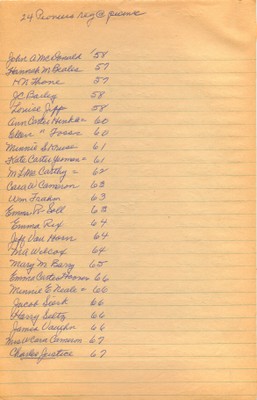 24 Pioneers reg @ picnic
John A McDonald '58
Hannah M Beales 57
H N Thone 57
JC Barley 58
Louise Jeff 58
Ann Carter Hinkle = 60
Ellen " Foss 60
Minnie S Kruse = 61
Kate Carter James = 61
M L McCarthy = 62
Cara W Cameron 62
Wm Frahm 63
Emma P. Soll 63
Emma Rix 64
Jeff Van Horn 64
M A Wilcox 64
Mary M. Barg 65
Emma Carter Hoomes 66
Minnie E Neale = 66
Jacob Sierk 66
Harry Seitz 66
James Vaughn 66
Mrs W Cara Cameron 67
Charles Justice 67